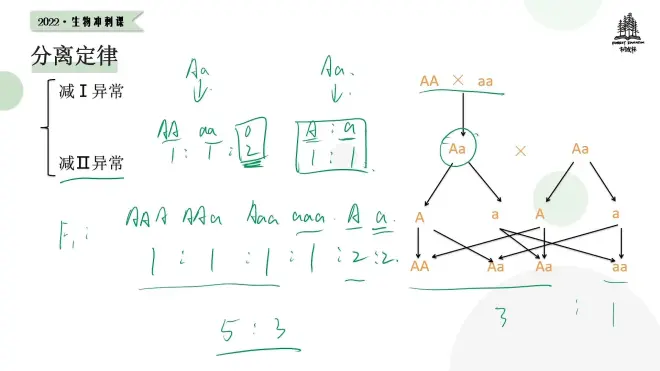 2022·生物冲刺课
分离定律
减Ⅰ异常
减Ⅱ异常
Aa
Aa
AA aa 0
1 : 1 : 2
A : a
1 : 1
F₁ : AAA AAa Aaa aaa A a
1 : 1 : 1 : 1 : 2 : 2
5 : 3
AA × aa
Aa × Aa
A a A a
AA Aa Aa aa
3 : 1